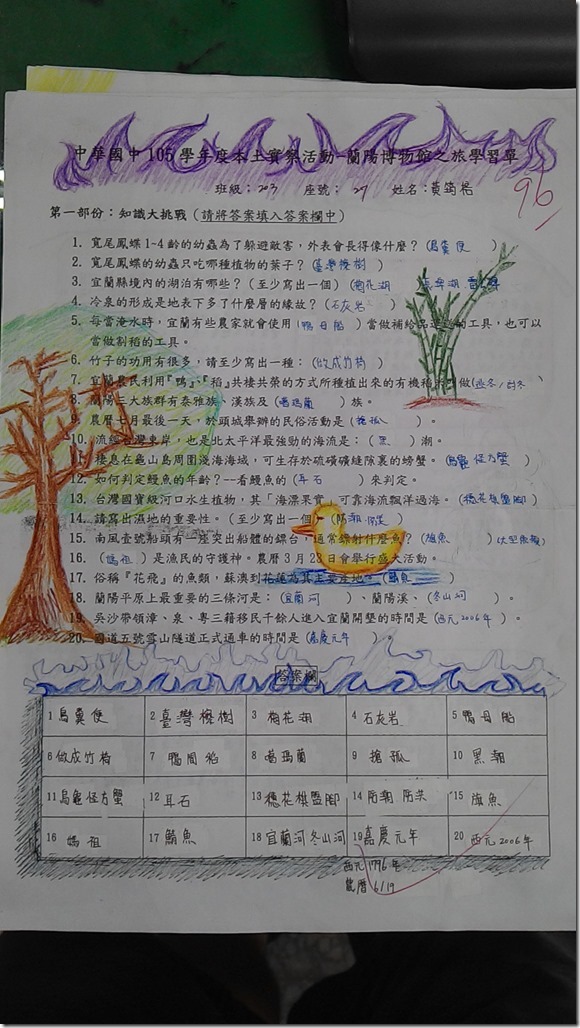 中華國中105學年度本土實察活動-蘭陽博物館之旅學習單
班級：203 座號：27 姓名：黃筠楷
96
第一部份：知識大挑戰（請將答案填入答案欄中）
1. 寬尾鳳蝶1-4齡的幼蟲為了躲避敵害，外表會長得像什麼？（鳥糞便）
2. 寬尾鳳蝶的幼蟲只吃哪種植物的葉子？（臺灣檫樹）
3. 宜蘭縣境內的湖泊有哪些？（至少寫出一個）（梅花湖
4. 冷泉的形成是地表下多了什麼層的緣故？（石灰岩）
5. 每當淹水時，宜蘭有些農家就會使用（鴨母船）當做補給品運送的工具，也可以
當做割稻的工具。
6. 竹子的功用有很多，請至少寫出一種：（做成竹椅）
7. 宜蘭農民利用『鴨』、『稻』共棲共榮的方式所種植出來的有機稻米叫做
8. 蘭陽三大族群有泰雅族、漢族及（噶瑪蘭）族。
9. 農曆七月最後一天，於頭城舉辦的民俗活動是（搶孤）。
10. 流經台灣東岸，也是北太平洋最強勁的海流是：（黑）潮。
11. 棲息在龜山島周圍淺海海域，可生存於硫磺礦縫隙裏的螃蟹。（烏龜怪方蟹）
12. 如何判定鰻魚的年齡？--看鰻魚的（耳石）來判定。
13. 台灣國寶級河口水生植物，其「海漂果實」可靠海流飄洋過海。（穗花棋盤腳）
14. 請寫出濕地的重要性。（至少寫出一個）（防潮 防洪）
15. 南風壹號船頭有一座突出船體的鏢台，通常鏢射什麼魚？（旗魚）
16. （媽祖）是漁民的守護神。農曆3月23日會舉行盛大活動。
17. 俗稱『花飛』的魚類，蘇澳到花蓮為其主要產地。（鯖魚）
18. 蘭陽平原上最重要的三條河是：（宜蘭河）、蘭陽溪、（冬山河）。
19. 吳沙帶領漳、泉、粵三籍移民千餘人進入宜蘭開墾的時間是（西元2006年）。
20. 國道五號雪山隧道正式通車的時間是（嘉慶元年）。
答案欄
1 鳥糞便 2 臺灣檫樹 3 梅花湖 4 石灰岩 5 鴨母船
6 做成竹椅 7 鴨間稻 8 噶瑪蘭 9 搶孤 10 黑潮
11 烏龜怪方蟹 12 耳石 13 穗花棋盤腳 14 防潮 防洪 15 旗魚
16 媽祖 17 鯖魚 18 宜蘭河冬山河 19 嘉慶元年 20 西元2006年
西元1796年
農曆6/19